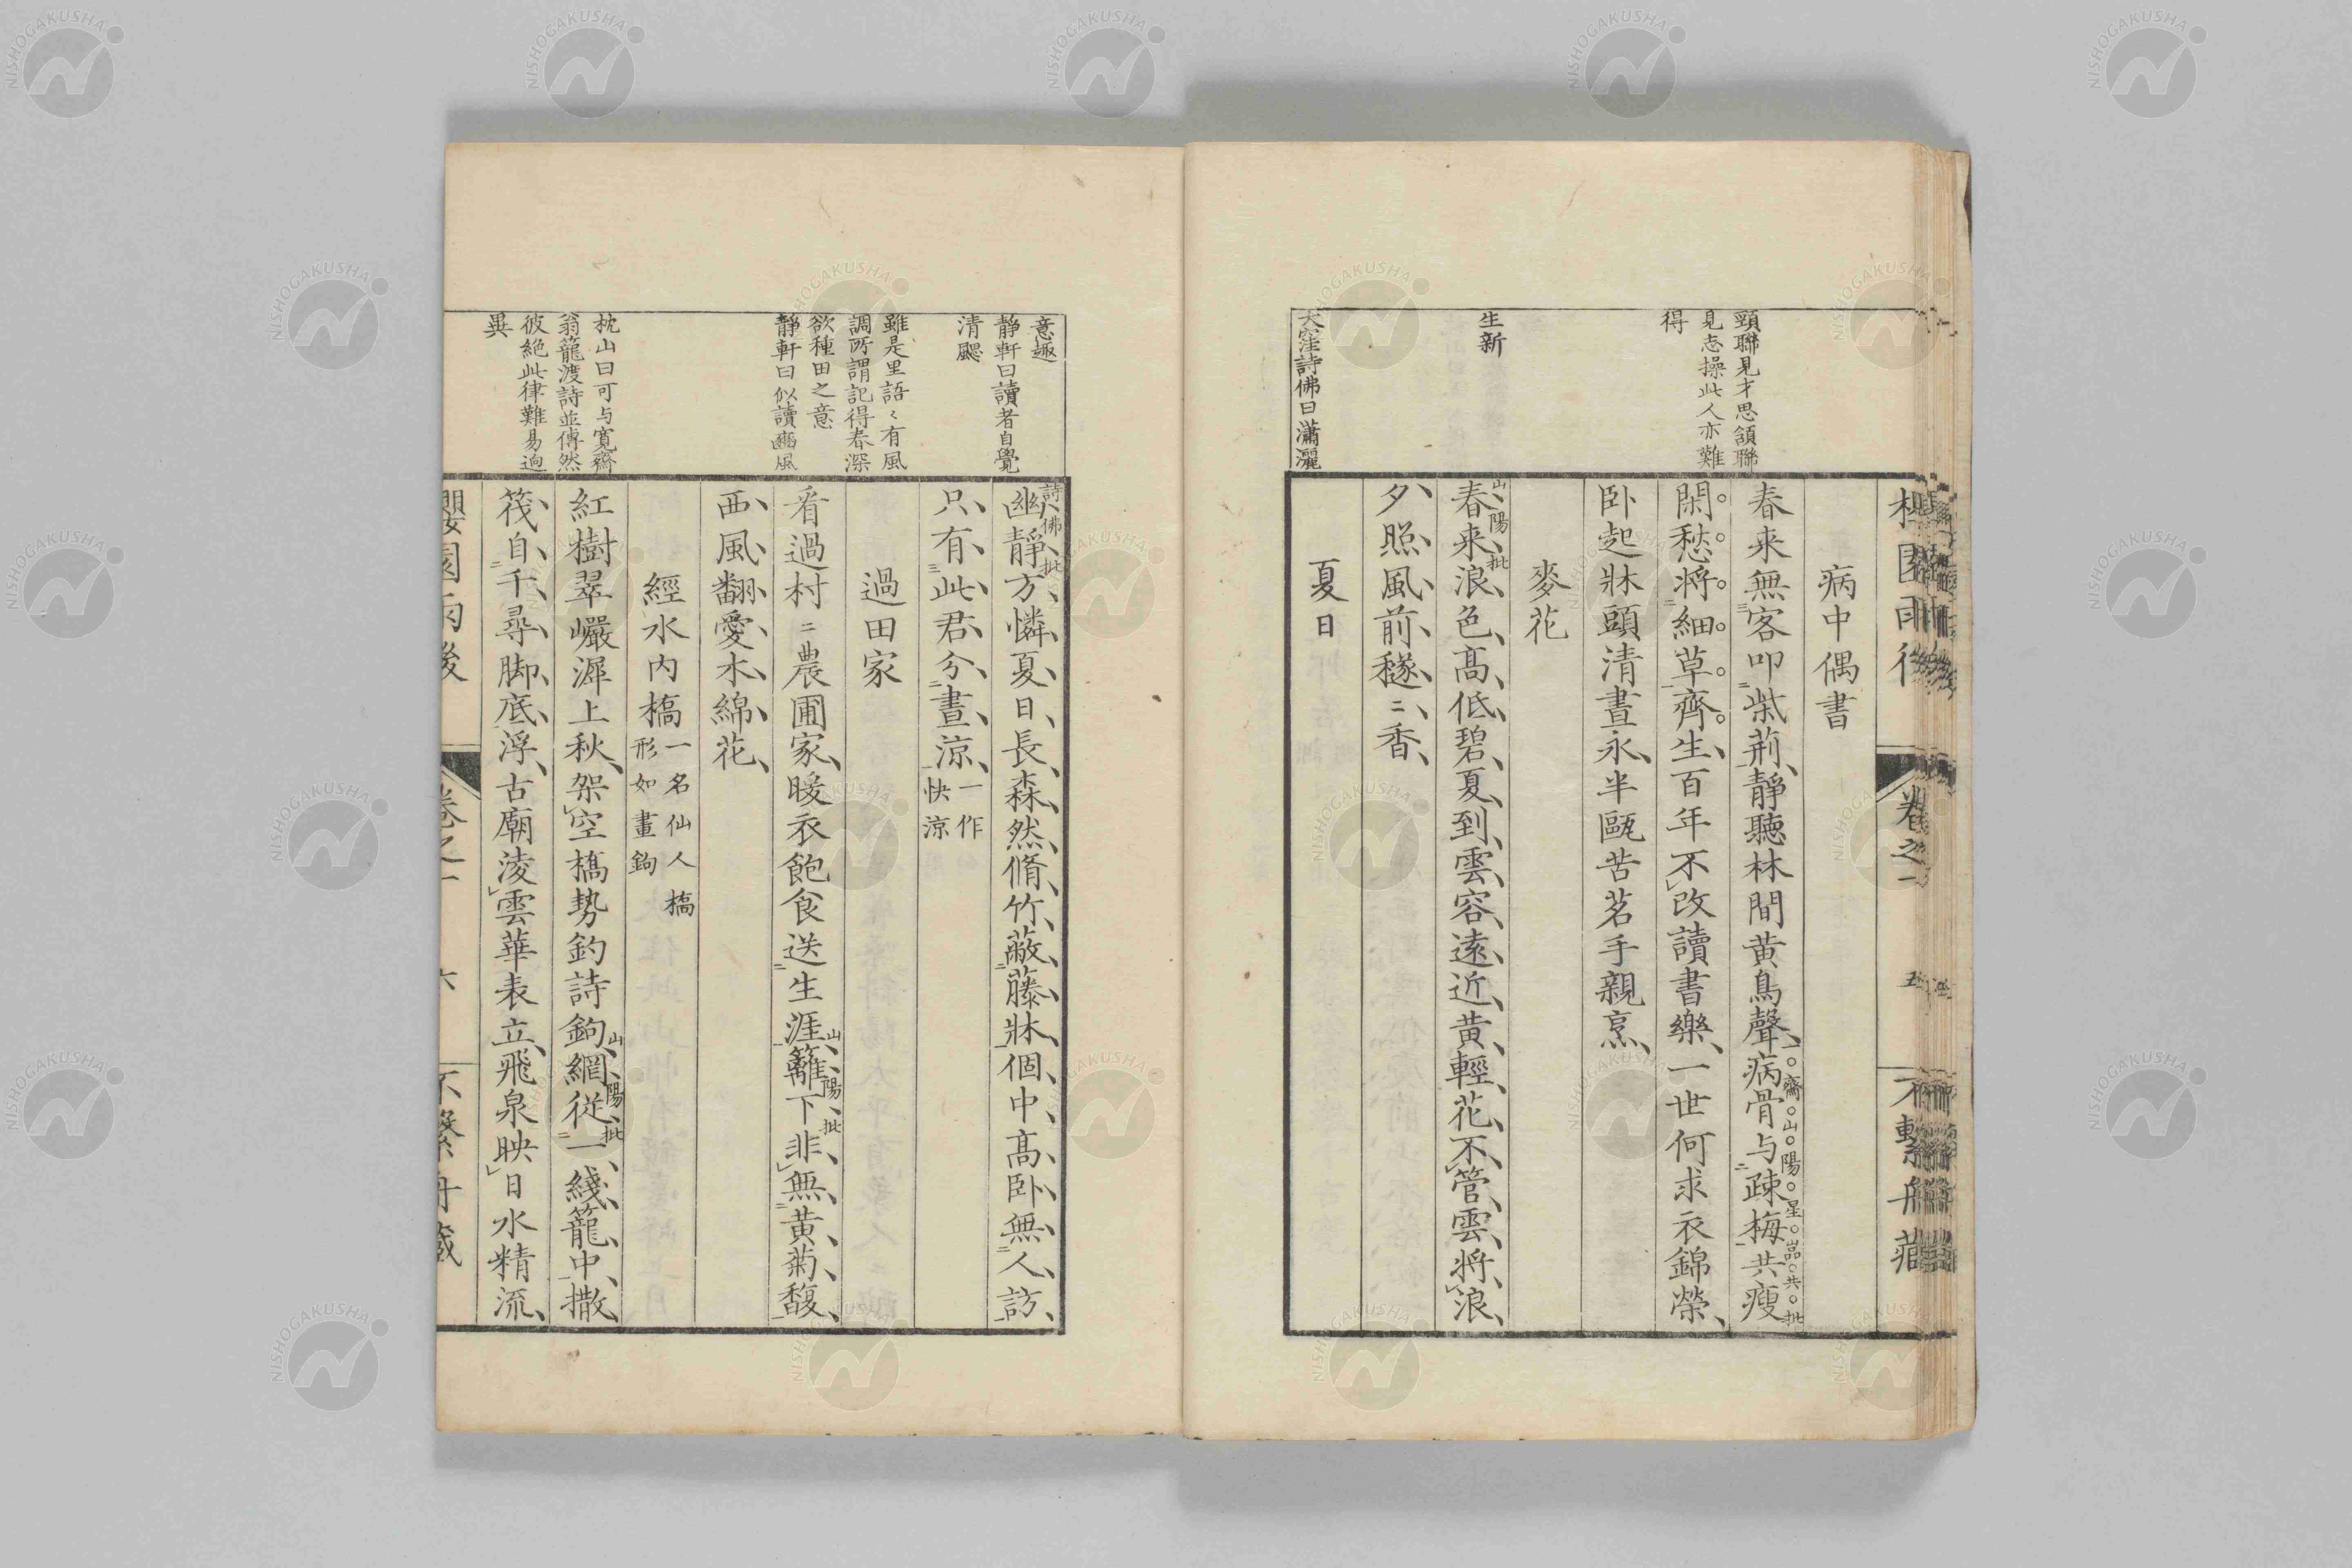 頸聯見才思頷聯
見志操此人亦難
得
生新
大窪詩佛曰瀟灑
卷之一
五
不繫舟藏
病中偶書
春来無客叩柴荊靜聽林間黄鳥聲病骨与疎梅共瘦
齋山陽星嵓共批
閑愁将細草齊生百年不改讀書樂一世何求衣錦榮
卧起牀頭清晝永半甌苦茗手親烹
麥花
春来浪色高低碧夏到雲容遠近黄輕花不管雲将浪
山陽批
夕照風前穟〻香
夏日
意趣
靜軒曰讀者自覺
清颸
雖是里語〻有風
調所謂記得春深
欲種田之意
靜軒曰似讀豳風
枕山曰可与寛齋
翁籠渡詩並傳然
彼絶此律難易迥
異
幽靜方憐夏日長森然脩竹蔽藤牀個中高卧無人訪
詩佛批
只有此君分晝涼一作快涼
過田家
看過村〻農圃家暖衣飽食送生涯籬下非無黄菊馥
山陽批
西風翻愛木綿花
經水内橋一名仙人橋形如畫鉤
紅樹翠巖漽上秋架空橋勢釣詩鉤網従一綫籠中撒
山陽批
筏自千尋脚底浮古廟淩雲華表立飛泉映日水精流
櫻園雨後
卷之一
六
不繫舟藏
NISHOGAKUSHA